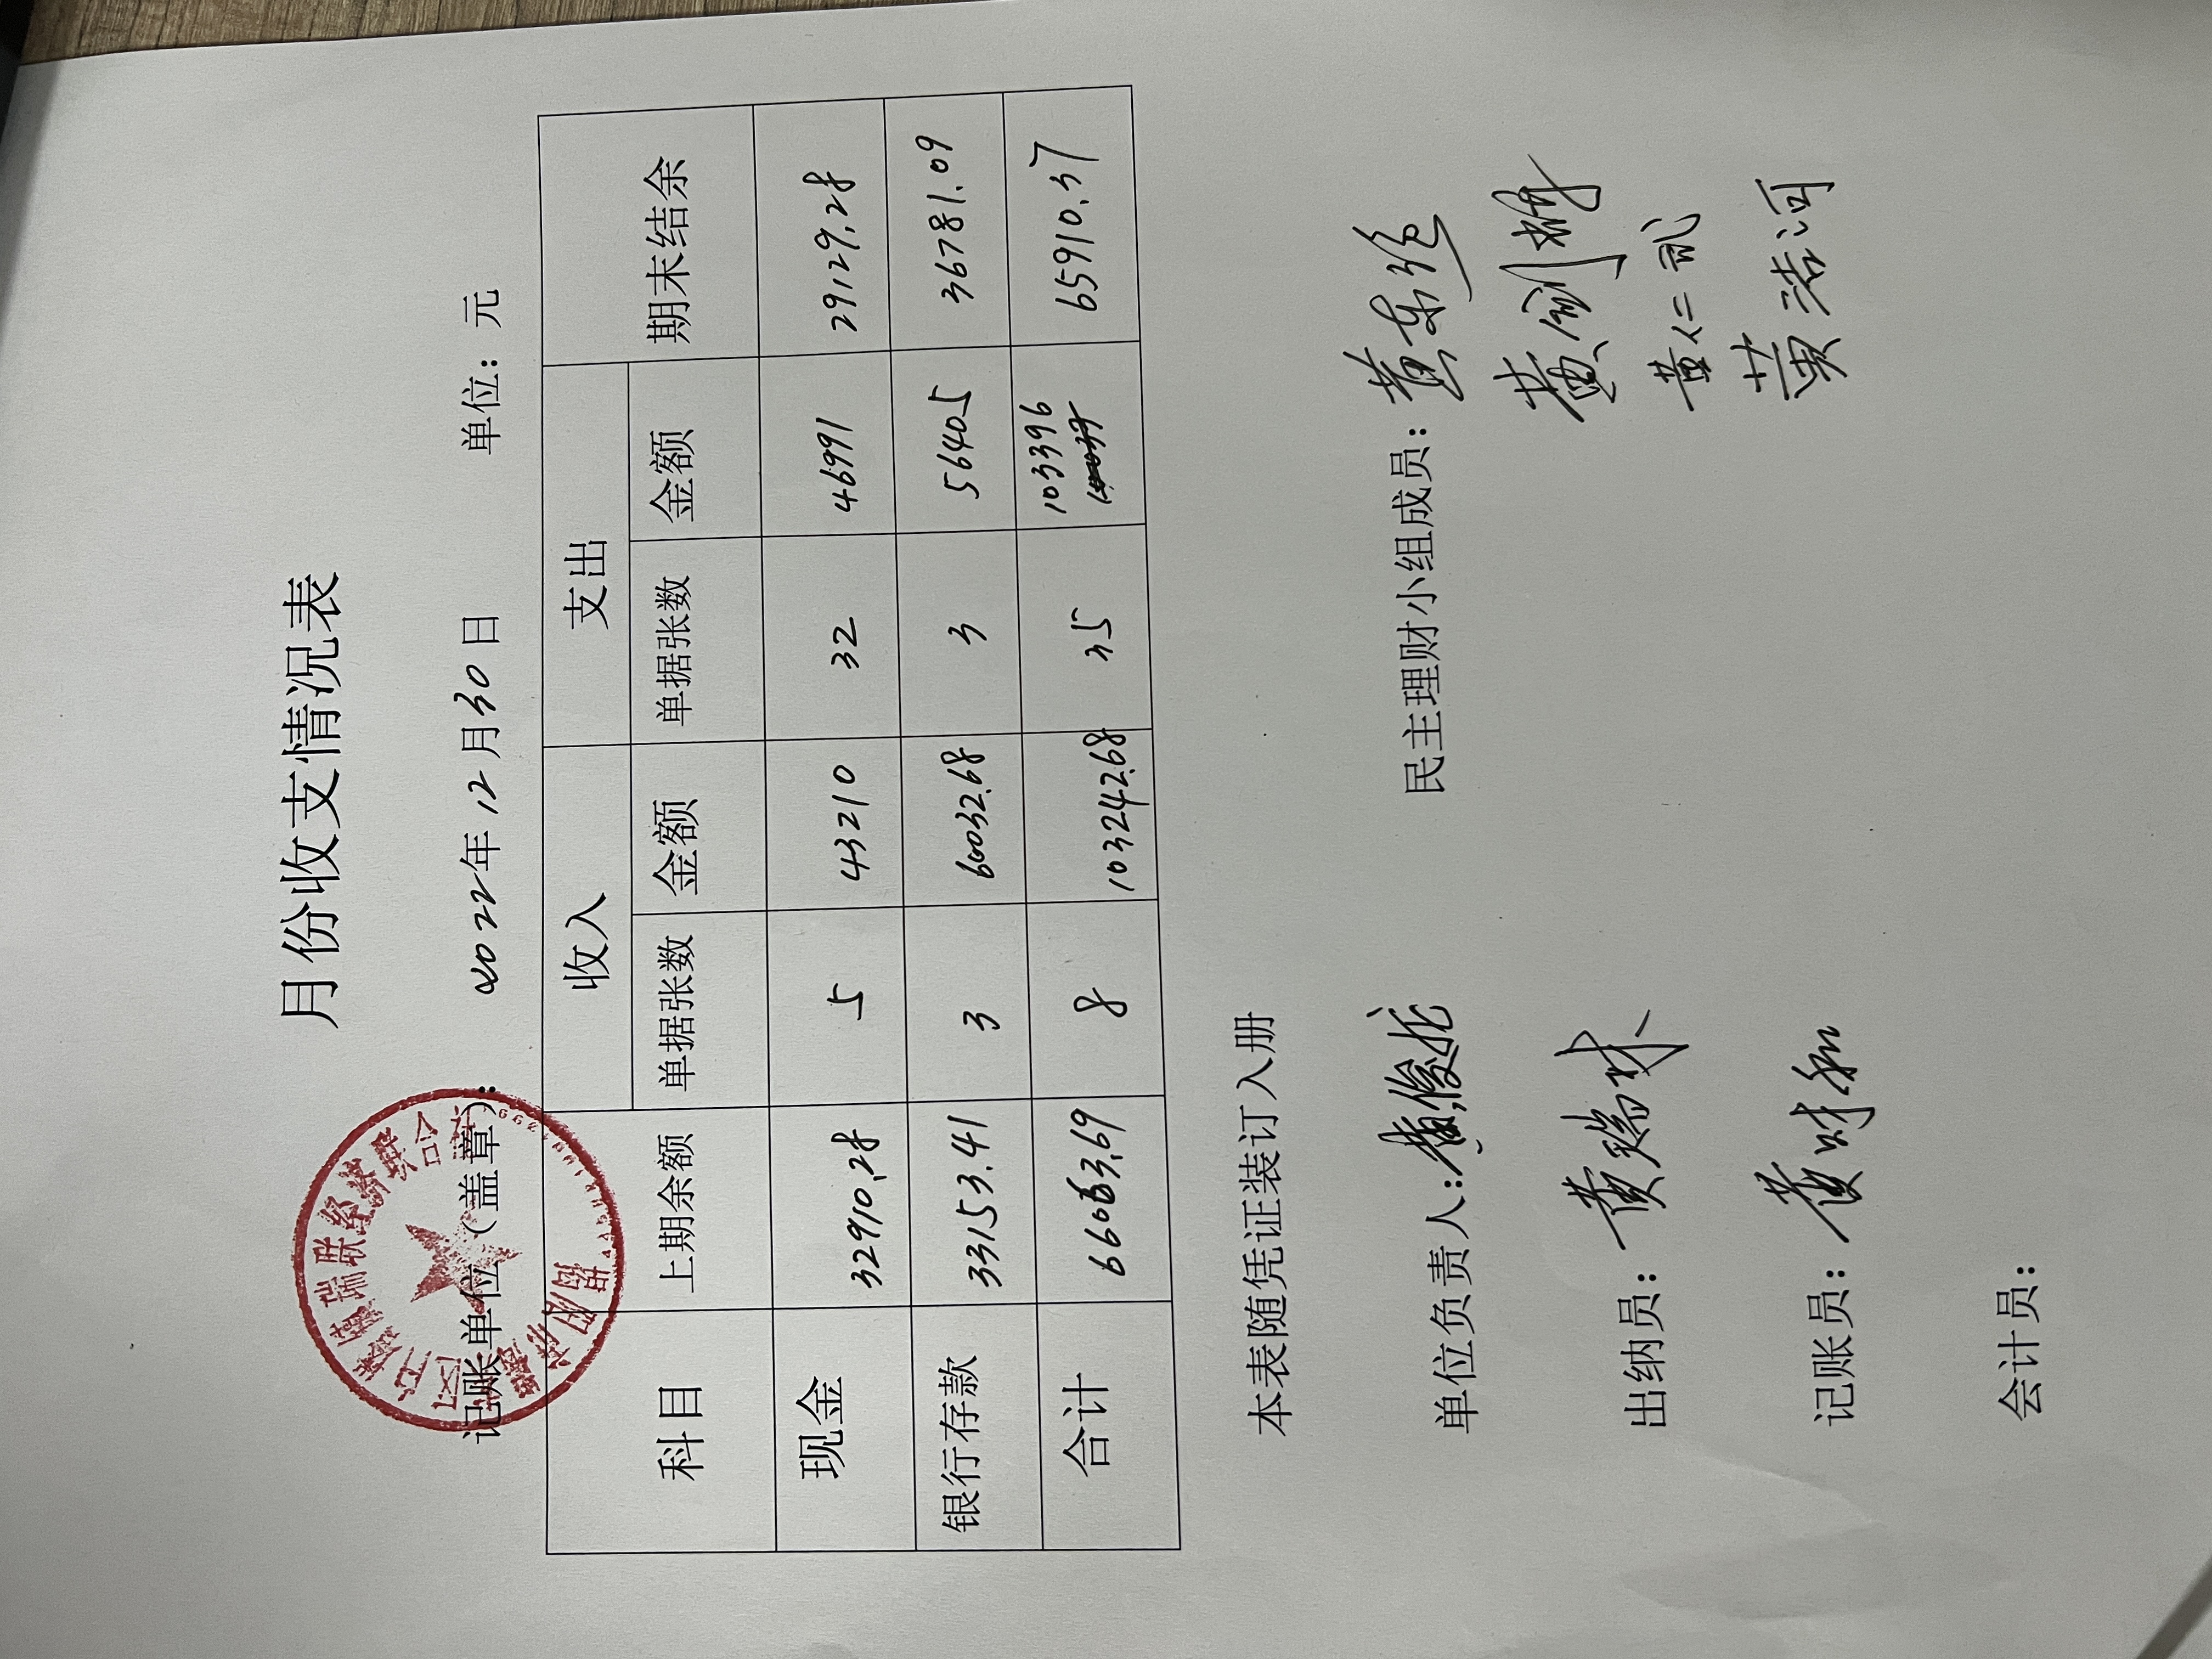 月份收支情况表
记账单位（盖章）： 2022年12月30日 单位：元
科目 上期余额 收入 支出 期末结余
单据张数 金额 单据张数 金额
现金 32910.28 5 43210 32 46991 29129.28
银行存款 33153.41 3 60032.68 3 56405 36781.09
合计 66063.69 8 103242.68 35 103396 65910.37
本表随凭证装订入册
单位负责人：黄俊托 民主理财小组成员：黄东
黄剑辉
出纳员：黄瑞林 黄仁贰
记账员：黄 黄浩河
会计员：